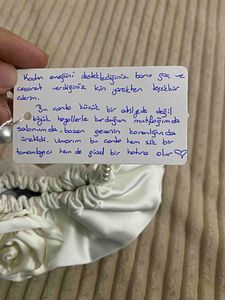 Kadın emeğini desteklediğiniz bana güç ve
cesaret verdiğiniz için yürekten teşekkür
ederim.
Bu canta küçük bir atölyede değil
büyük hayallerle kurduğum mutfağımda
salonumda, bazen gecenin karanlığında
üretildi. Umarım bu canta hem şık bir
tamamlayıcı hem de güzel bir hatıra olur